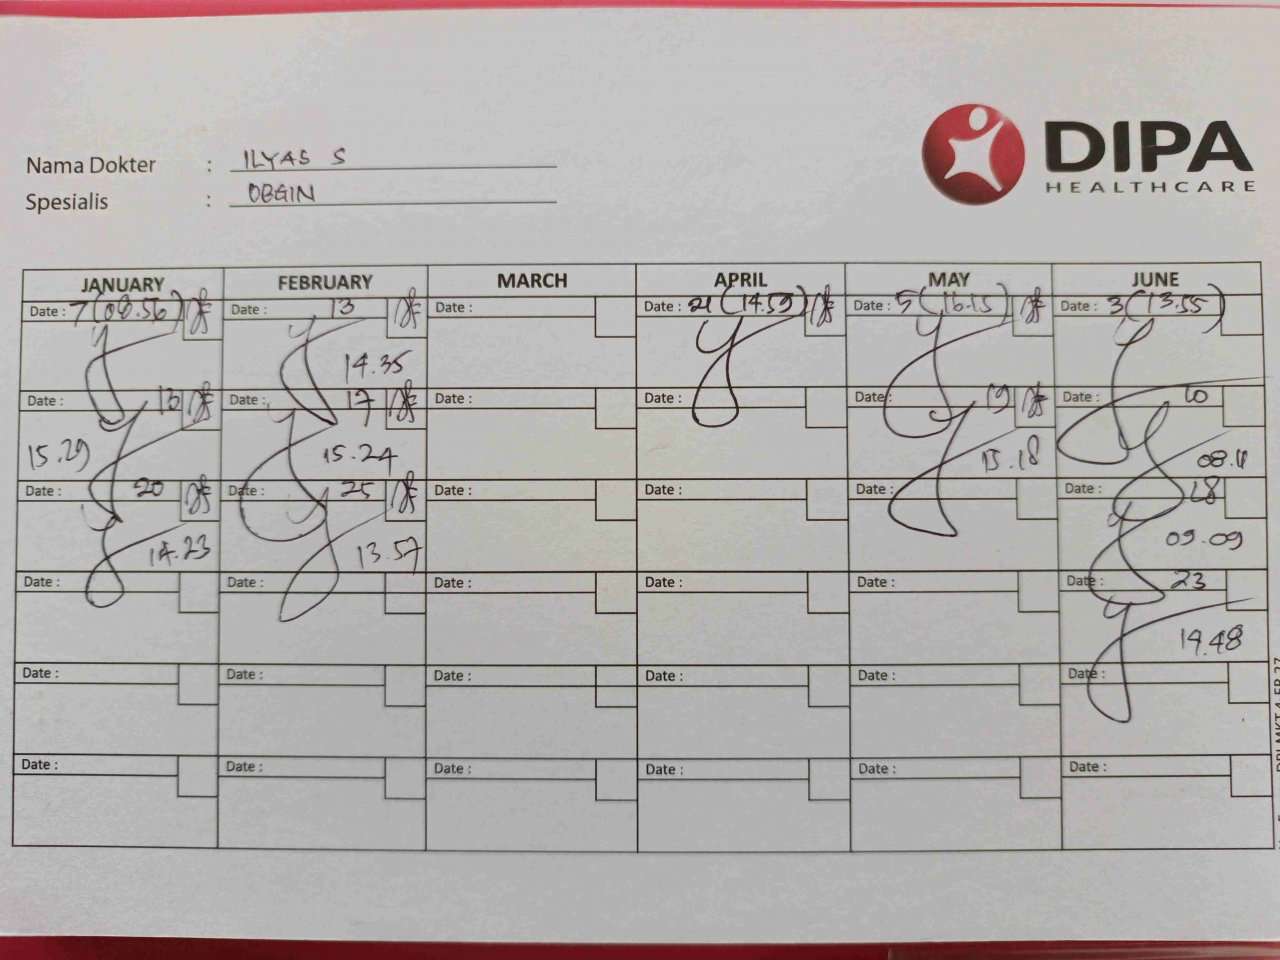 DIPA
HEALTHCARE
Nama Dokter : ILYAS S
Spesialis : OBGIN
JANUARY FEBRUARY MARCH APRIL MAY JUNE
Date : 7 (08.56) Date : 13 Date : Date : 21 (14.59) Date : 5 (16.15) Date : 3 (13.55)
14.35
Date : 13 Date : 17 Date : Date : Date : 19 Date : 10
15.29 15.24 13.18 08.11
Date : 20 Date : 25 Date : Date : Date : Date : 18
14.23 13.57 09.09
Date : Date : Date : Date : Date : Date : 23
14.48
Date : Date : Date : Date : Date : Date :
Date : Date : Date : Date : Date : Date :